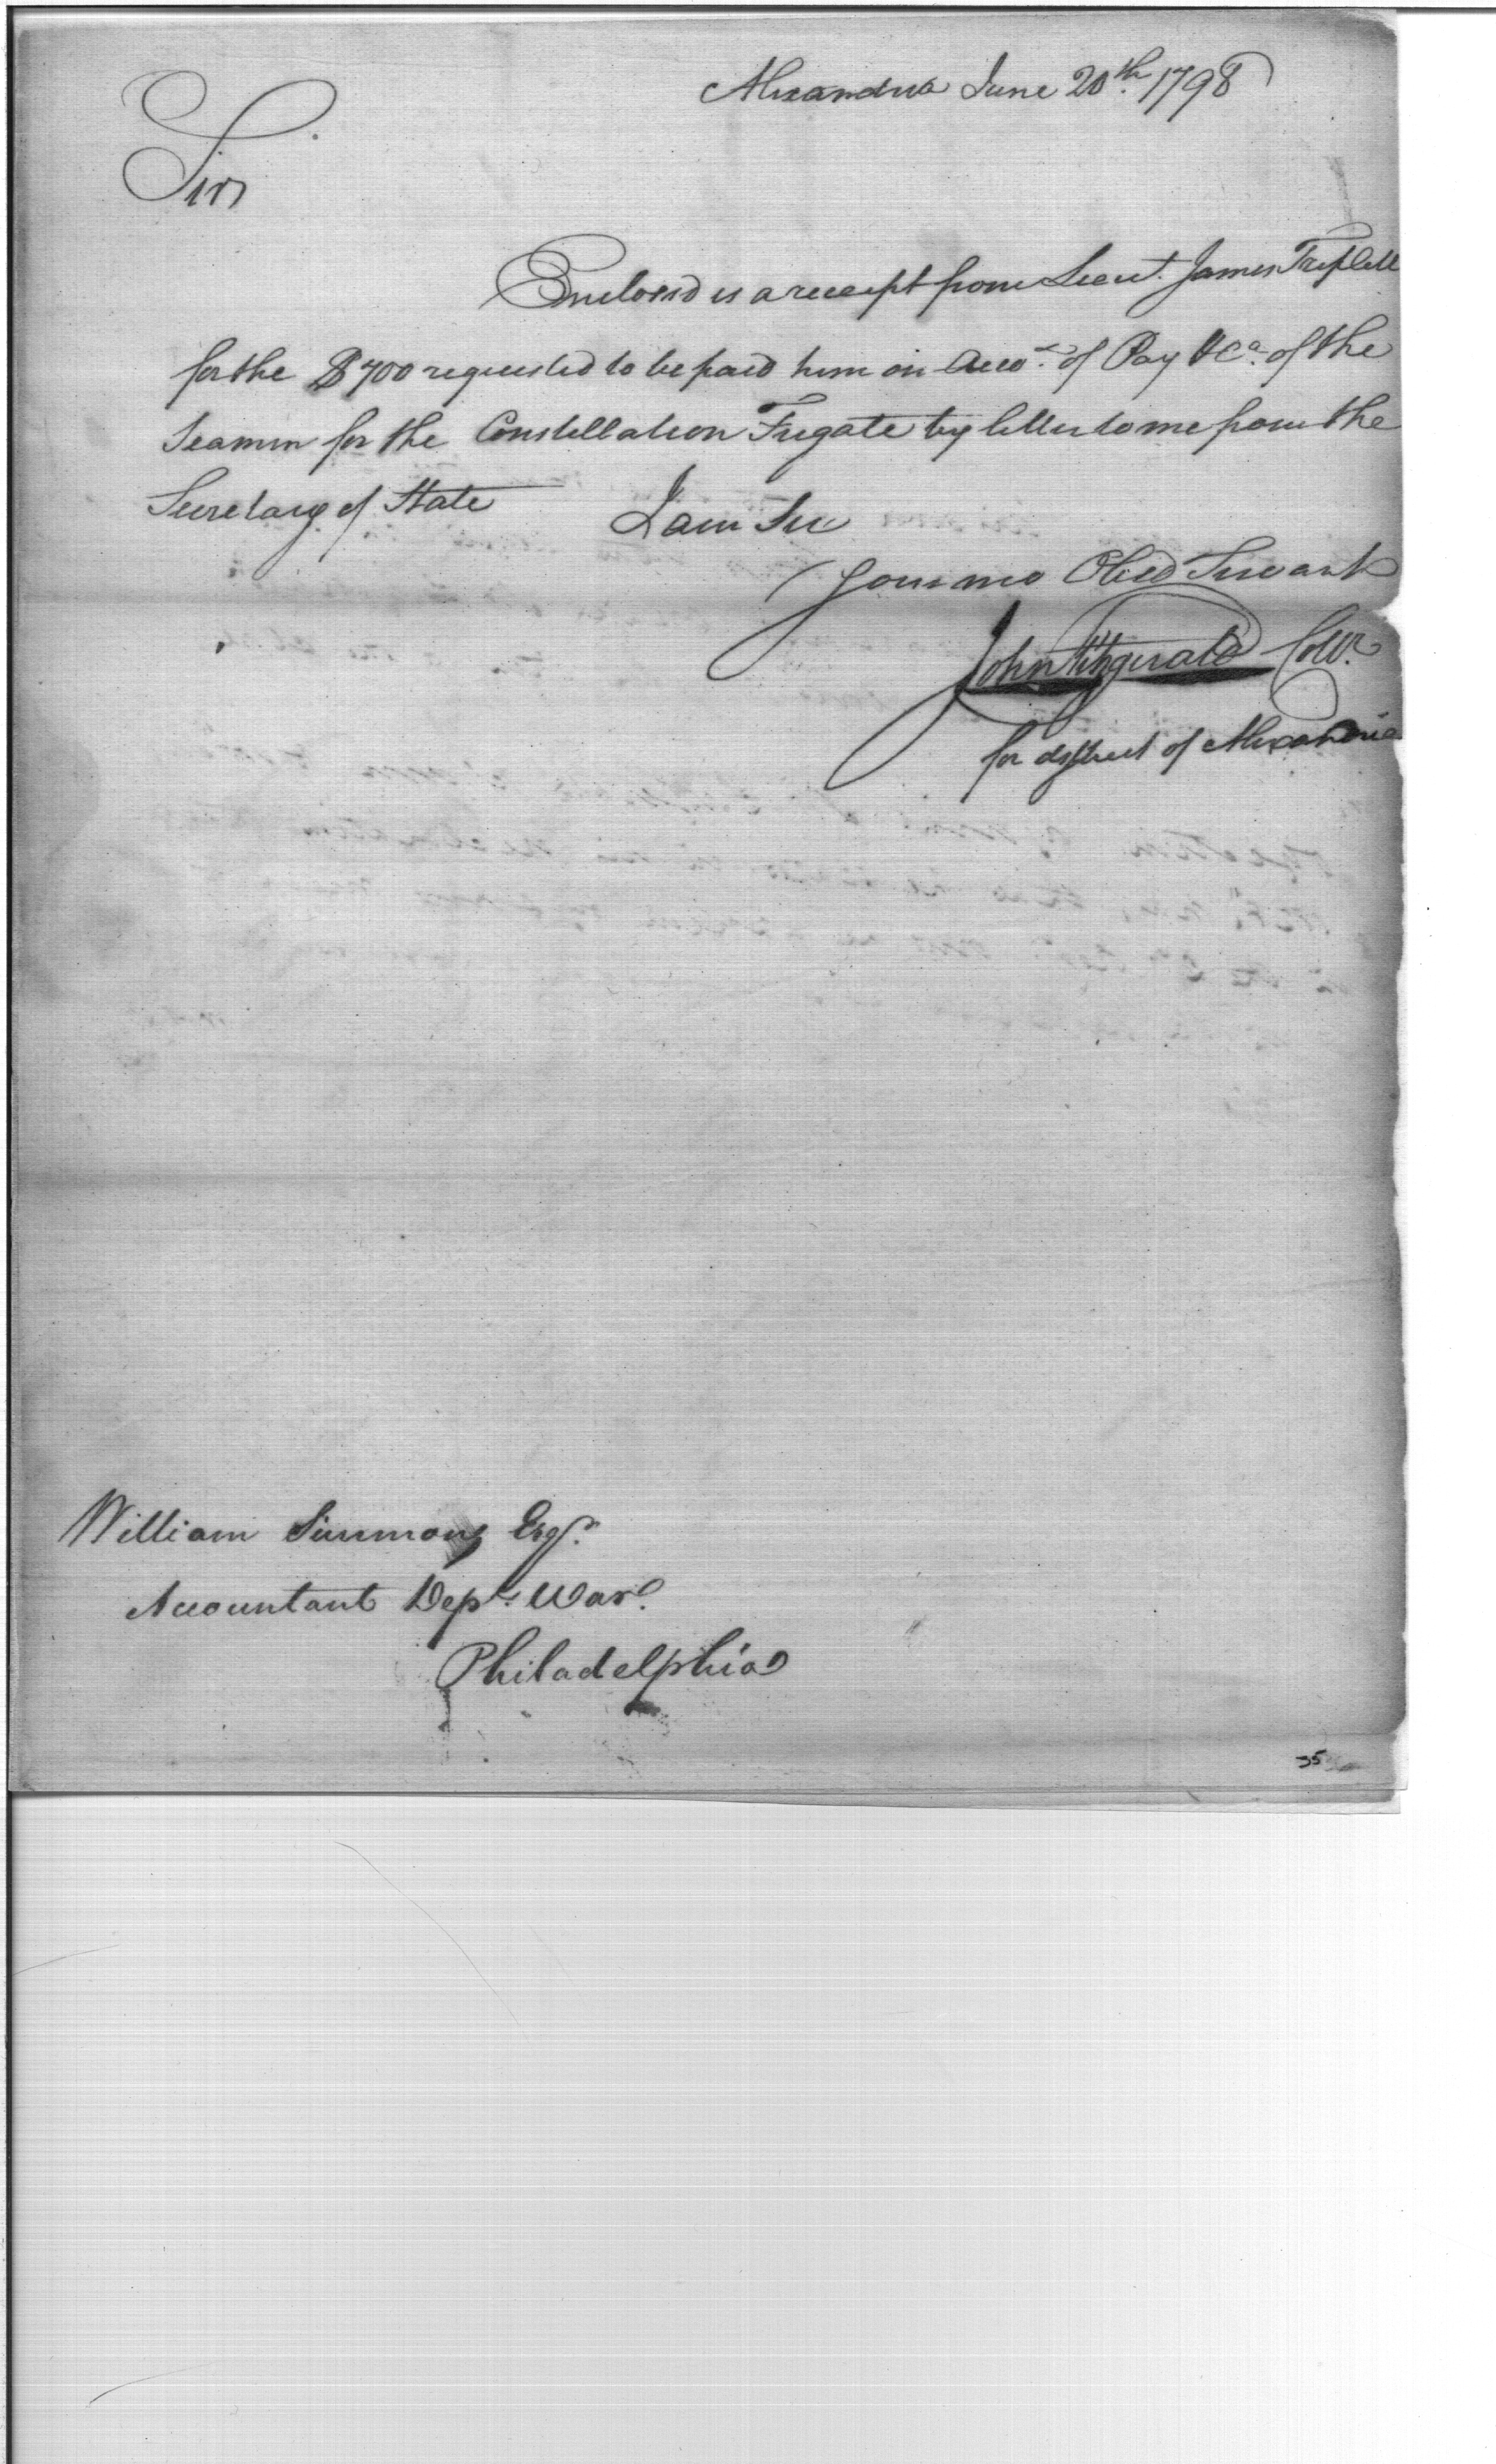 Alexandria June 20th. 1798
Sir
Enclosed is a receipt from Lieut. James Triplett
for the $700 requested to be paid him on Acco.t of Pay &Ca. of the
Seamen for the Constellation Frigate by letter to me from the
Secretary of State
I am Sir
Your mo Obed Servant
John Fitzgerald Collr.
for district of Alexandria
William Simmons Esqr.
Accountant Dept. War.
Philadelphia
35